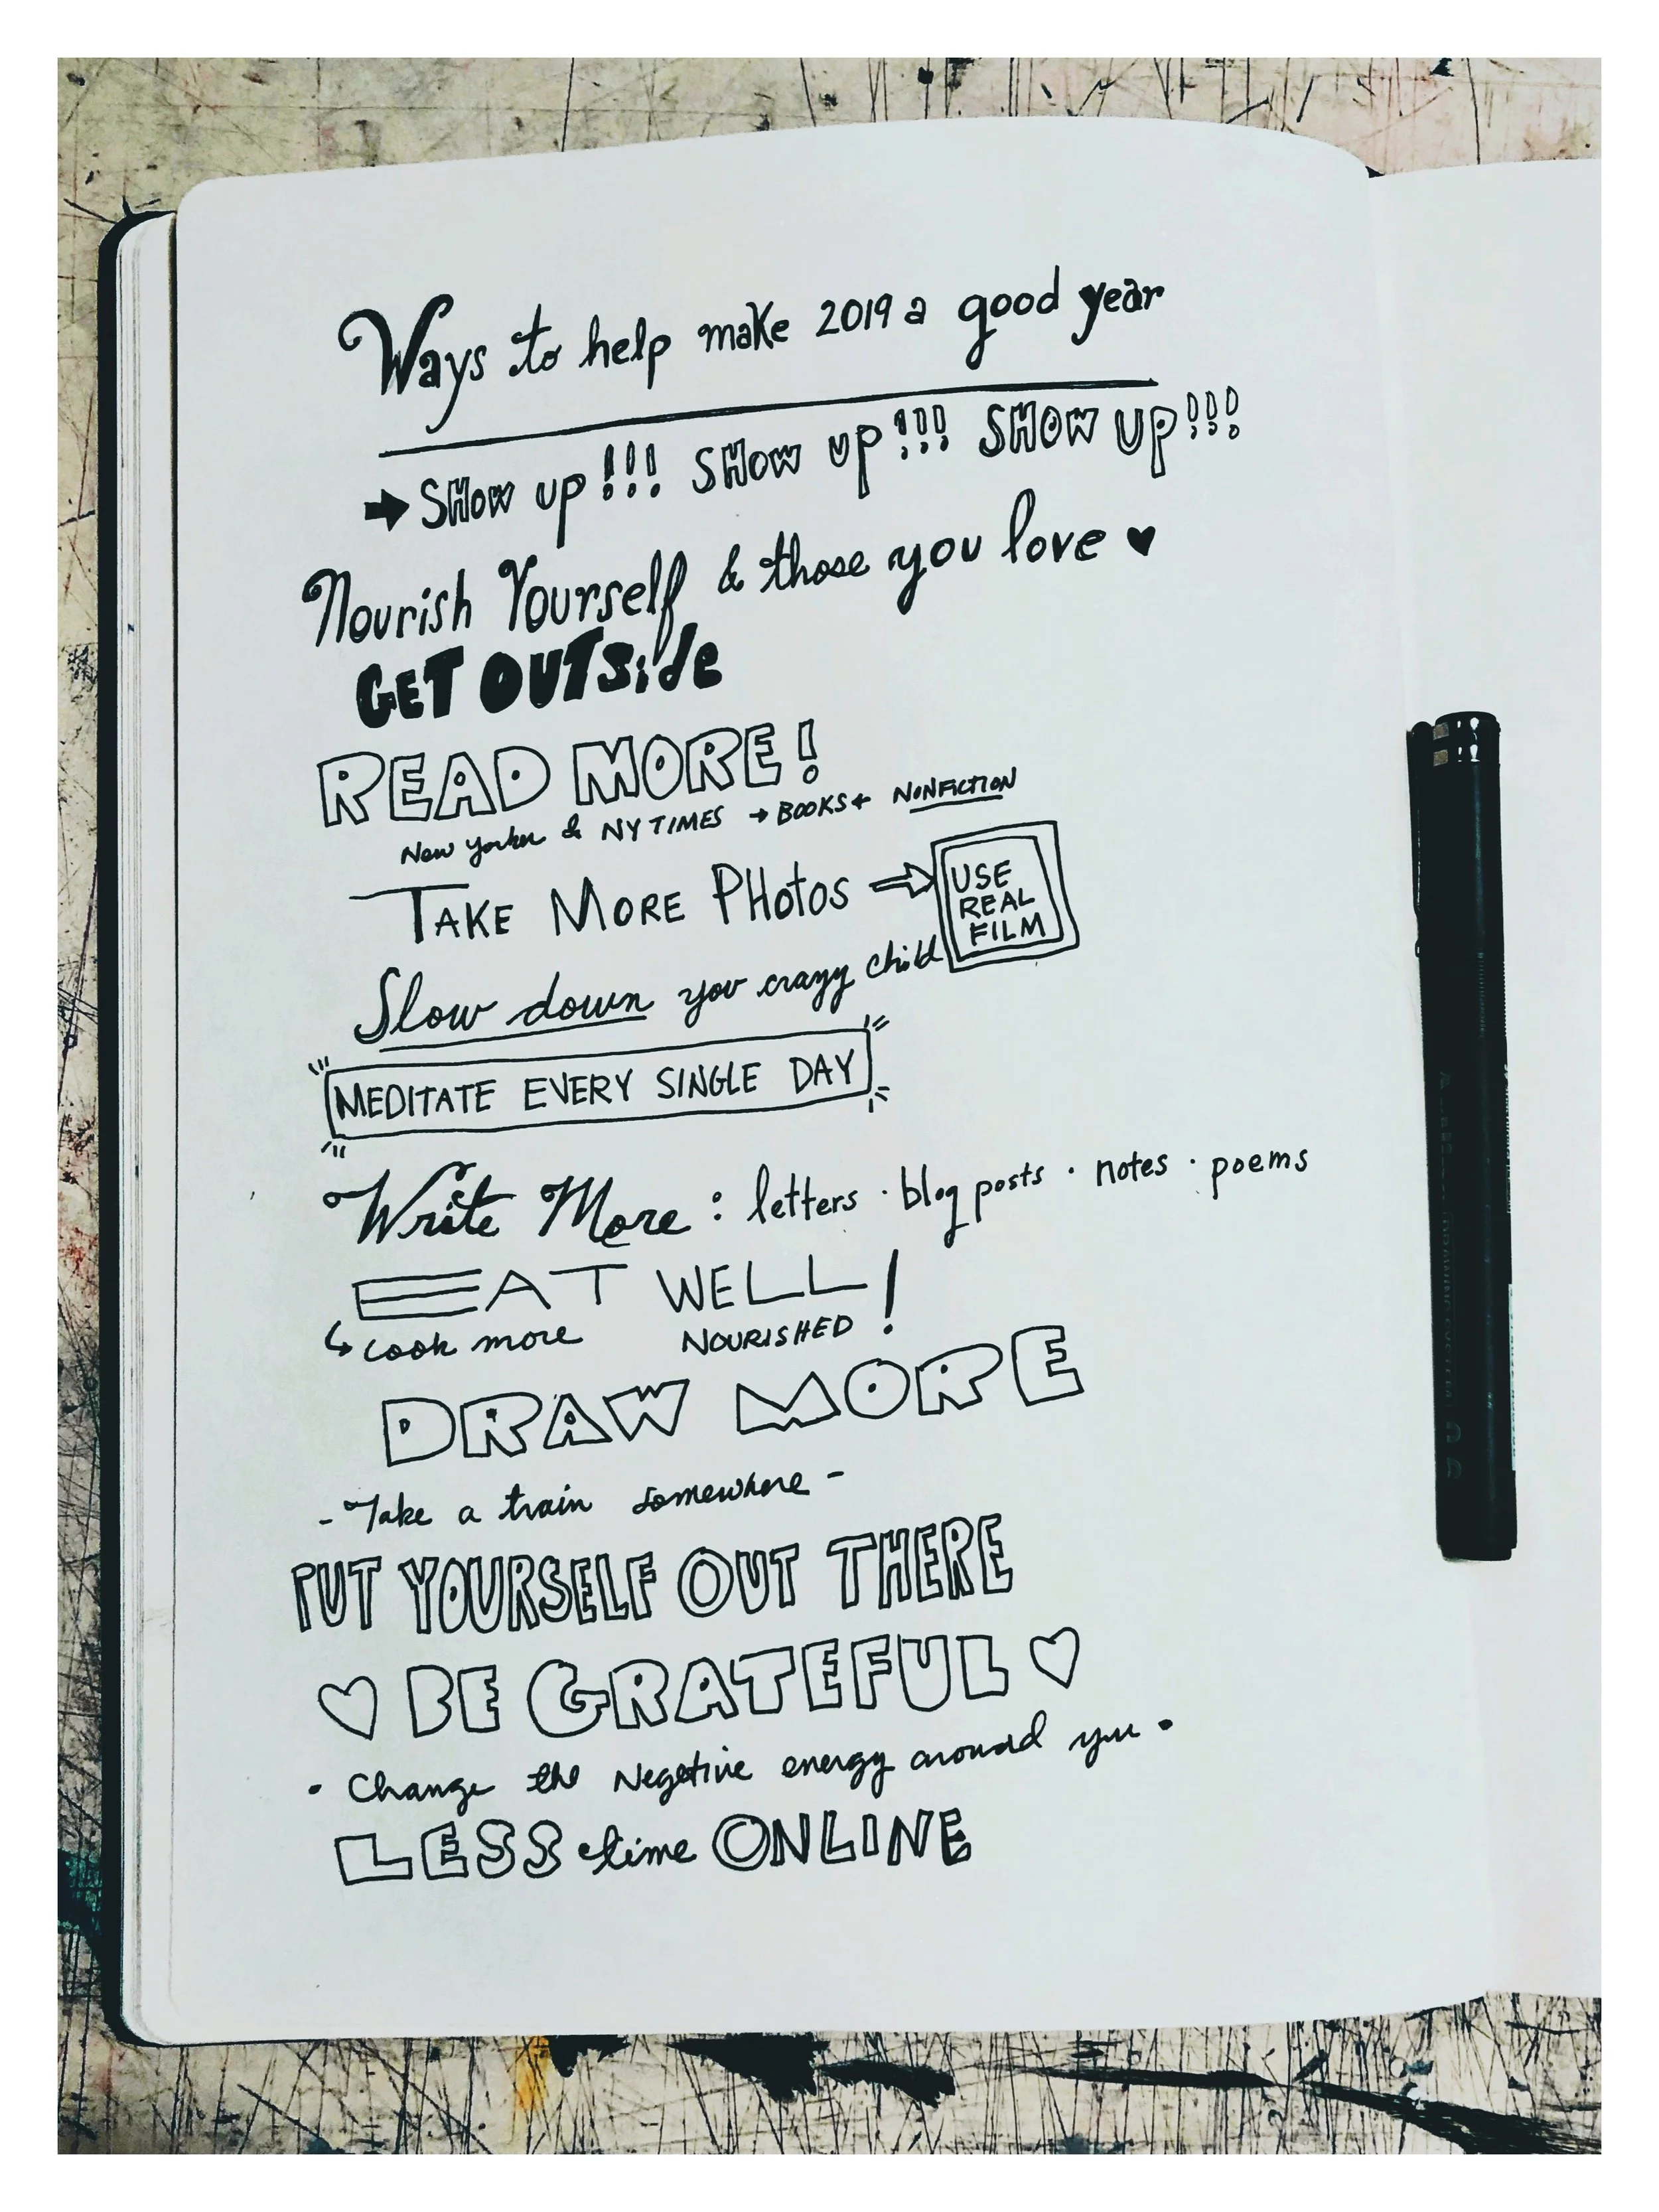 Ways to help make 2019 a good year
→ SHOW UP!!! SHOW UP!!! SHOW UP!!!
Nourish Yourself & those you love ♥
GET OUTSide
READ MORE!
New Yorker & NY TIMES → BOOKS ← NONFICTION
TAKE MORE PHOTOS ⇒ USE REAL FILM
Slow down you crazy child
MEDITATE EVERY SINGLE DAY
Write More: letters · blog posts · notes · poems
EAT WELL!
↳ cook more NOURISHED
DRAW MORE
- Take a train somewhere -
PUT YOURSELF OUT THERE
♡ BE GRATEFUL ♡
• Change the Negative energy around you •
LESS time ONLINE